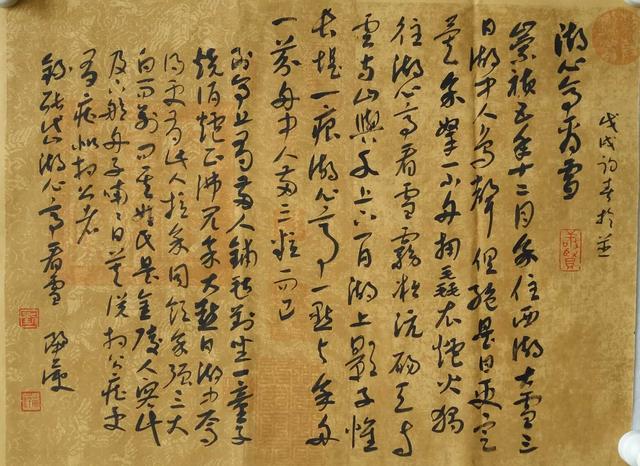 戊戌
湖心亭看雪
崇禎五年十二月余住西湖大雪三
日湖中人鳥聲俱絕是日更定
矣余拏一小舟擁毳衣爐火獨
往湖心亭看雪霧凇沆碭天與
雲與山與水上下一白湖上影子惟
長堤一痕湖心亭一點與余舟
一芥舟中人兩三粒而已
到亭上有兩人鋪氈對坐一童子
燒酒爐正沸見余大喜曰湖中焉
得更有此人拉余同飲余強三大
白而別問其姓氏是金陵人客此
及下船舟子喃々曰莫說相公癡更
有癡似相公者
錄張岱湖心亭看雪